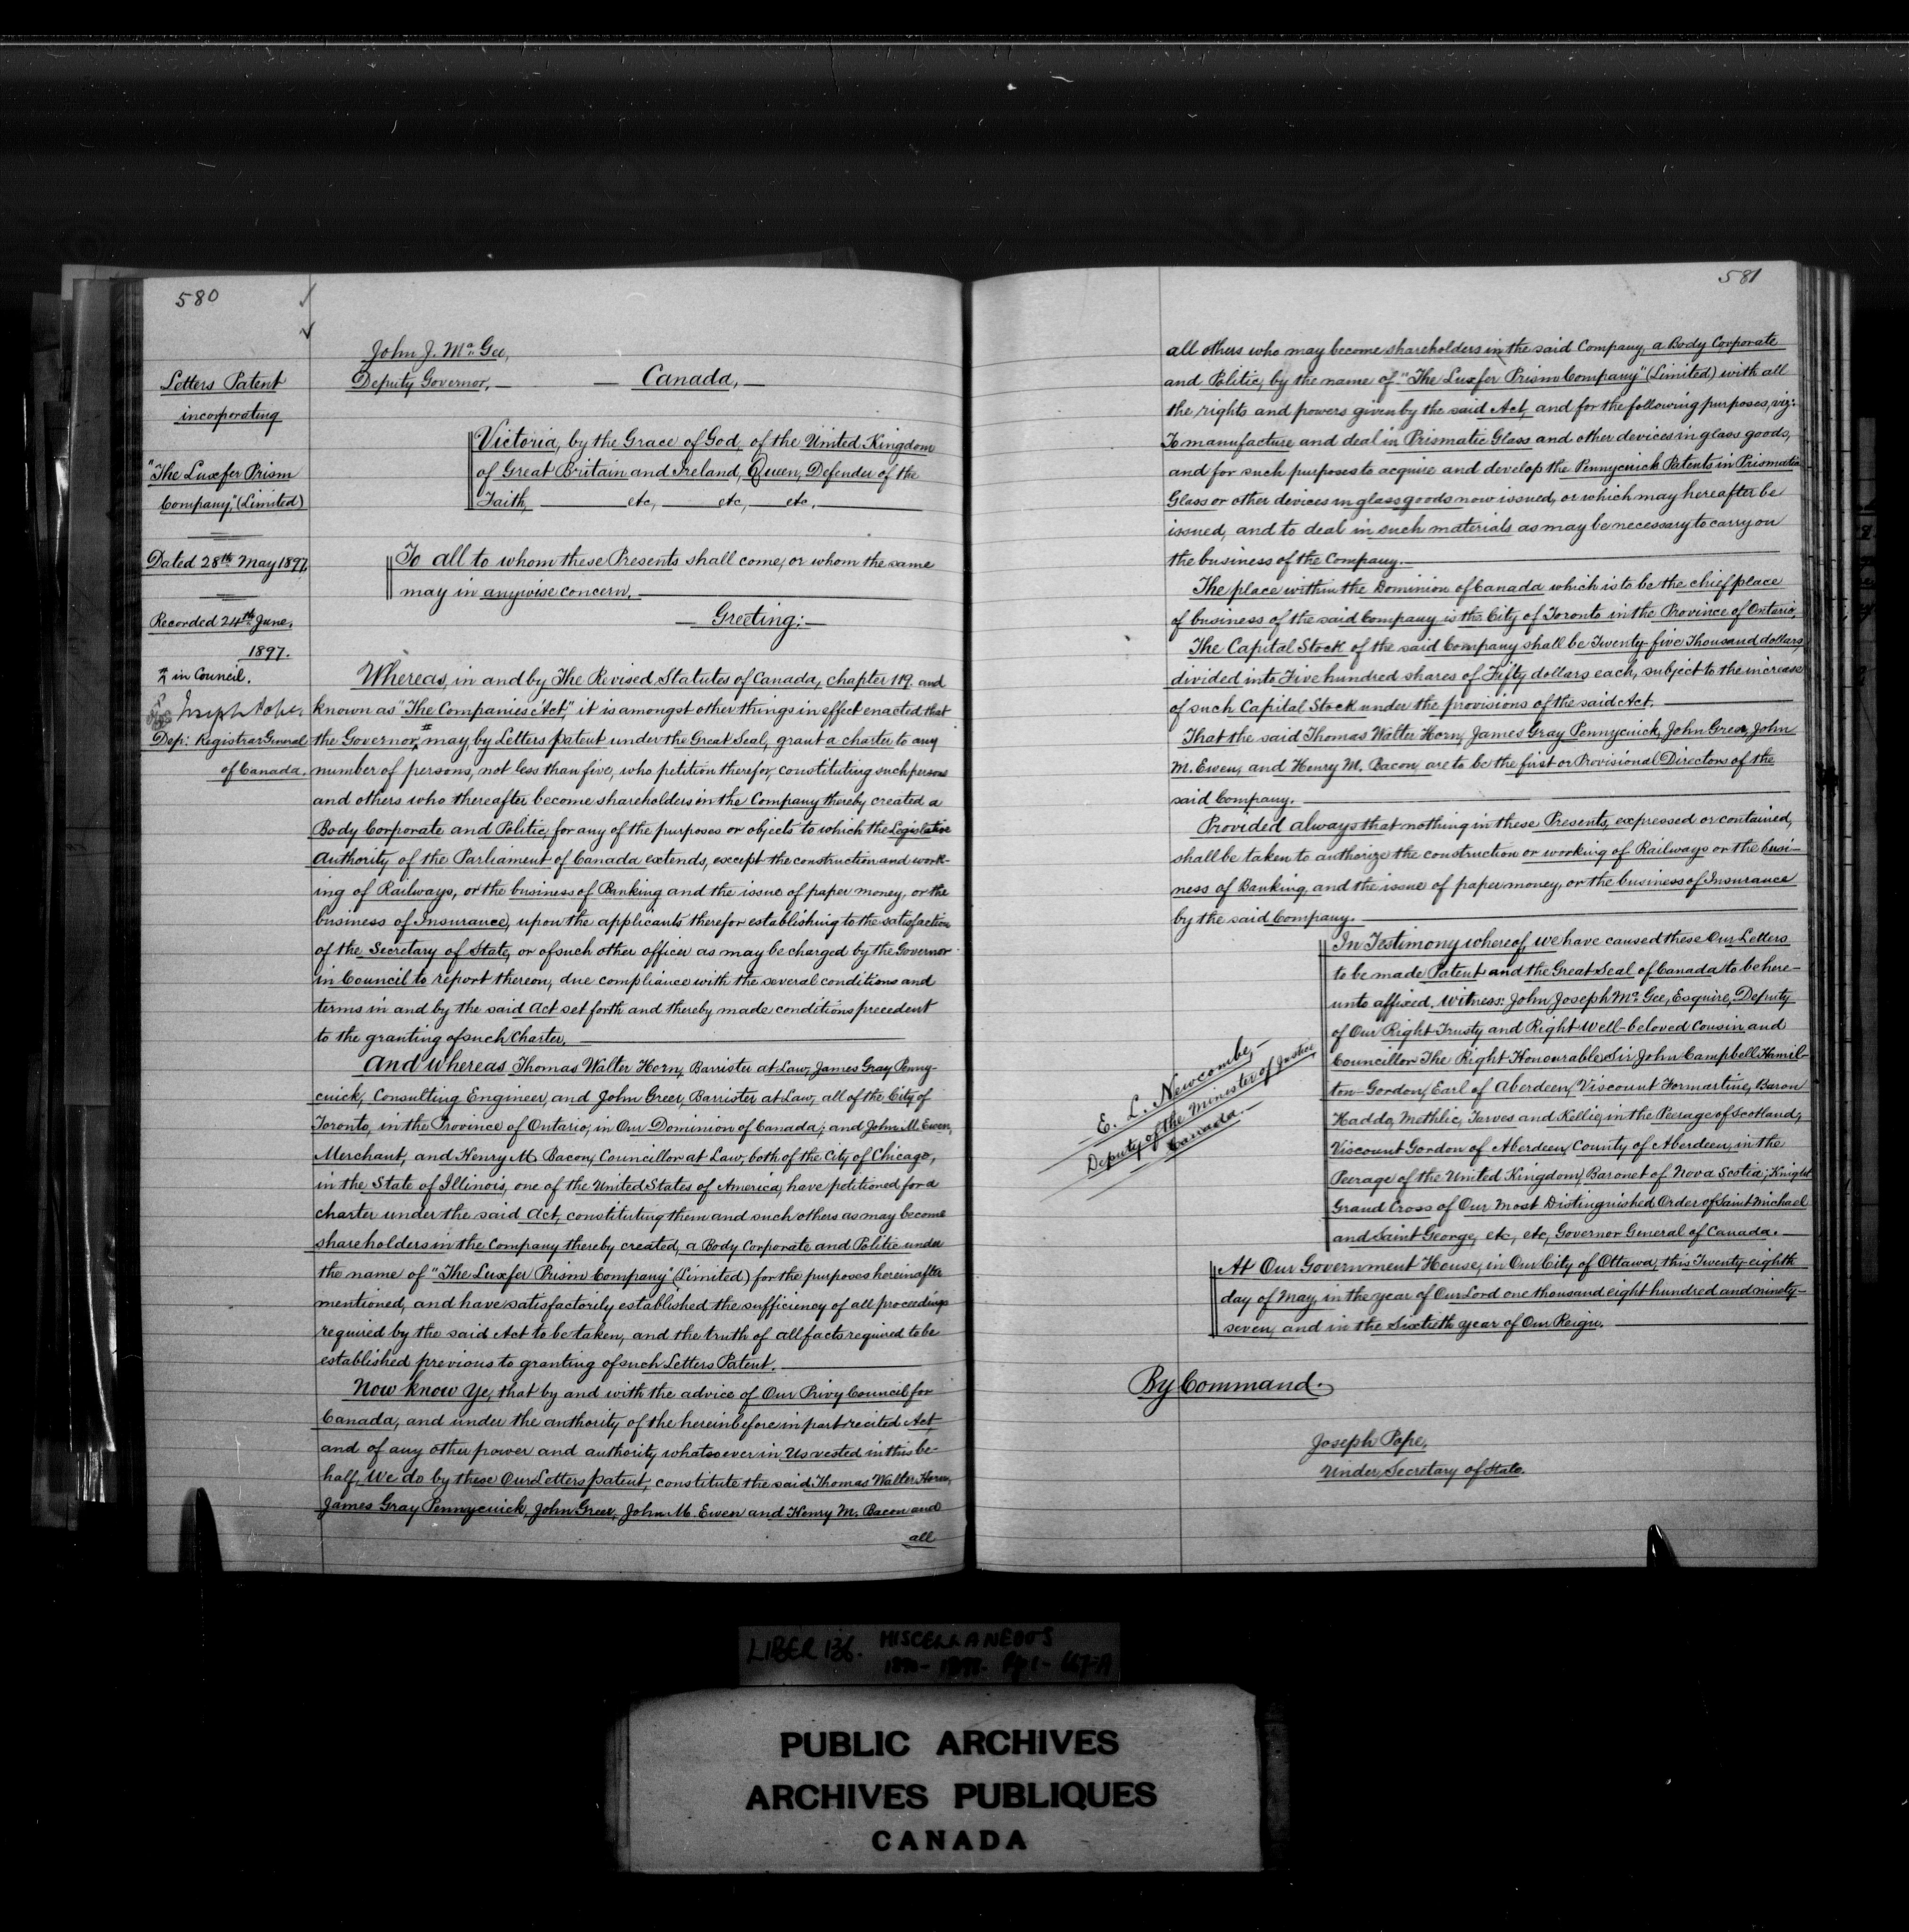 580
John J. McGee,
Deputy Governor,
Canada,
Letters Patent
incorporating
"The Luxfer Prism
Company," (Limited)
Dated 28th May 1897.
Recorded 24th June,
1897.
# in Council.
Joseph Pope
Dep: Registrar General
of Canada.
Victoria, by the Grace of God, of the United Kingdom
of Great Britain and Ireland, Queen, Defender of the
Faith, etc, etc, etc.
To all to whom these Presents shall come, or whom the same
may in anywise concern,
Greeting:
Whereas, in and by The Revised Statutes of Canada, chapter 119. and
known as "The Companies Act," it is amongst other things in effect enacted that
the Governor, # may, by Letters patent under the Great Seal, grant a charter to any
number of persons, not less than five, who petition therefor, constituting such persons
and others who thereafter become shareholders in the Company thereby created a
Body Corporate and Politic, for any of the purposes or objects to which the Legislative
Authority of the Parliament of Canada extends, except the construction and work-
ing of Railways, or the business of Banking and the issue of paper money, or the
business of Insurance, upon the applicants therefor establishing to the satisfaction
of the Secretary of State, or of such other officer as may be charged by the Governor
in Council to report thereon, due compliance with the several conditions and
terms in and by the said Act set forth and thereby made conditions precedent
to the granting of such Charter.
And whereas Thomas Walter Horn, Barrister at Law, James Gray Penny-
cuick, Consulting Engineer, and John Greer, Barrister at Law, all of the City of
Toronto, in the Province of Ontario, in Our Dominion of Canada; and John M. Ewen,
Merchant, and Henry M. Bacon, Councillor at Law, both of the City of Chicago,
in the State of Illinois, one of the United States of America, have petitioned for a
charter under the said Act, constituting them and such others as may become
shareholders in the Company thereby created, a Body Corporate and Politic under
the name of "The Luxfer Prism Company" (Limited) for the purposes hereinafter
mentioned, and have satisfactorily established the sufficiency of all proceedings
required by the said Act to be taken, and the truth of all facts required to be
established previous to granting of such Letters Patent.
Now know Ye, that by and with the advice of Our Privy Council for
Canada, and under the authority of the hereinbefore in part recited Act,
and of any other power and authority whatsoever in Us vested in this be-
half, We do by these Our Letters patent, constitute the said Thomas Walter Horn,
James Gray Pennycuick, John Greer, John M. Ewen and Henry M. Bacon and
all
581
all others who may become shareholders in the said Company, a Body Corporate
and Politic, by the name of "The Luxfer Prism Company" (Limited) with all
the rights and powers given by the said Act, and for the following purposes, viz:
To manufacture and deal in Prismatic Glass and other devices in glass goods,
and for such purposes to acquire and develop the Pennycuick Patents in Prismatic
Glass or other devices in glass goods now issued, or which may hereafter be
issued, and to deal in such materials as may be necessary to carry on
the business of the Company.
The place within the Dominion of Canada which is to be the chief place
of business of the said Company is the City of Toronto in the Province of Ontario,
The Capital Stock of the said Company shall be Twenty-five thousand dollars,
divided into Five hundred shares of Fifty dollars each, subject to the increase
of such Capital Stock under the provisions of the said Act.
That the said Thomas Walter Horn, James Gray Pennycuick, John Greer, John
M. Ewen, and Henry M. Bacon, are to be the first or Provisional Directors of the
said Company.
Provided always that nothing in these Presents, expressed or contained,
shall be taken to authorize the construction or working of Railways or the busi-
ness of Banking, and the issue of paper money, or the business of Insurance
by the said Company.
In Testimony whereof, we have caused these Our Letters
to be made Patent and the Great Seal of Canada to be here-
unto affixed. Witness: John Joseph McGee, Esquire, Deputy
of Our Right Trusty and Right Well-beloved Cousin and
Councillor The Right Honourable Sir John Campbell Hamil-
ton-Gordon, Earl of Aberdeen, Viscount Formartine, Baron
Haddo, Methlic, Tarves and Kellie, in the Peerage of Scotland;
Viscount Gordon of Aberdeen, County of Aberdeen, in the
Peerage of the United Kingdom; Baronet of Nova Scotia; Knight
Grand Cross of Our Most Distinguished Order of Saint Michael
and Saint George, etc, etc, Governor General of Canada.
E. L. Newcombe,
Deputy of the Minister of Justice
Canada.
At Our Government House, in Our City of Ottawa, this Twenty-eighth
day of May, in the year of Our Lord one thousand eight hundred and ninety-
seven, and in the Sixtieth year of Our Reign.
By Command.
Joseph Pope,
Under Secretary of State.
LIBER 136. MISCELLANEOUS
PUBLIC ARCHIVES
ARCHIVES PUBLIQUES
CANADA